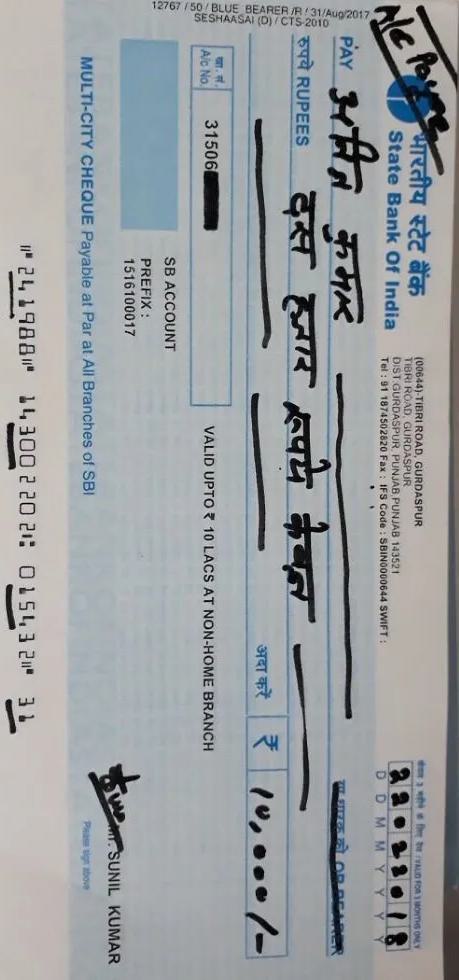 12767 / 50 / BLUE_BEARER /R / 31/Aug/2017
SESHAASAI (D) / CTS-2010
A/c Payee
भारतीय स्टेट बैंक
State Bank Of India
(00644)-TIBRI ROAD, GURDASPUR
TIBRI ROAD, GURDASPUR
DIST:GURDASPUR, PUNJAB,PUNJAB 143521
Tel : 91 1874502820 Fax : IFS Code : SBIN0000644 SWIFT :
केवल 3 महीने के लिए वैध / VALID FOR 3 MONTHS ONLY
22022018
D D M M Y Y Y Y
PAY अमित कुमार
या धारक को OR BEARER
रुपये RUPEES दस हजार रूपये केवल
अदा करें ₹ 10,000/-
खा. सं.
A/c No.
31506
VALID UPTO ₹ 10 LACS AT NON-HOME BRANCH
SB ACCOUNT
PREFIX :
1516100017
SUNIL KUMAR
Please sign above
MULTI-CITY CHEQUE Payable at Par at All Branches of SBI
⑈241988⑈ 143002202⑆ 015432⑈ 31